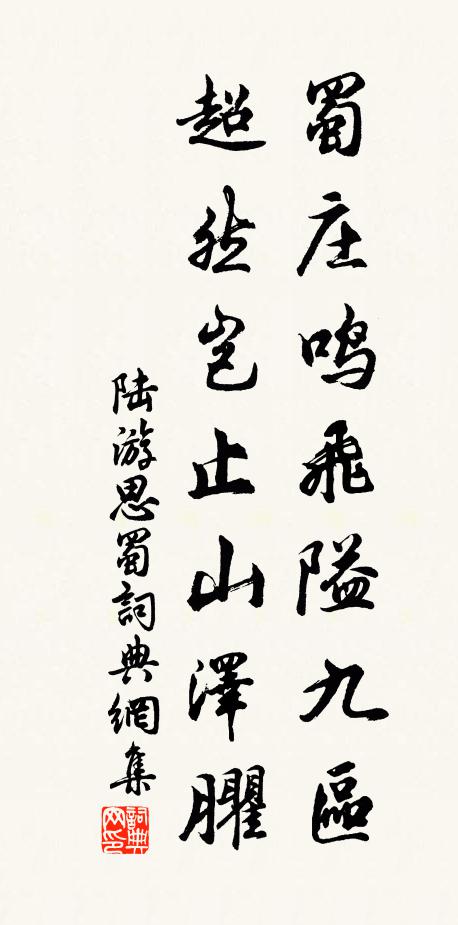 蜀庄鸣飛隘九區
超然岂止山澤臞
陆游思蜀詞典網集
詞典网印